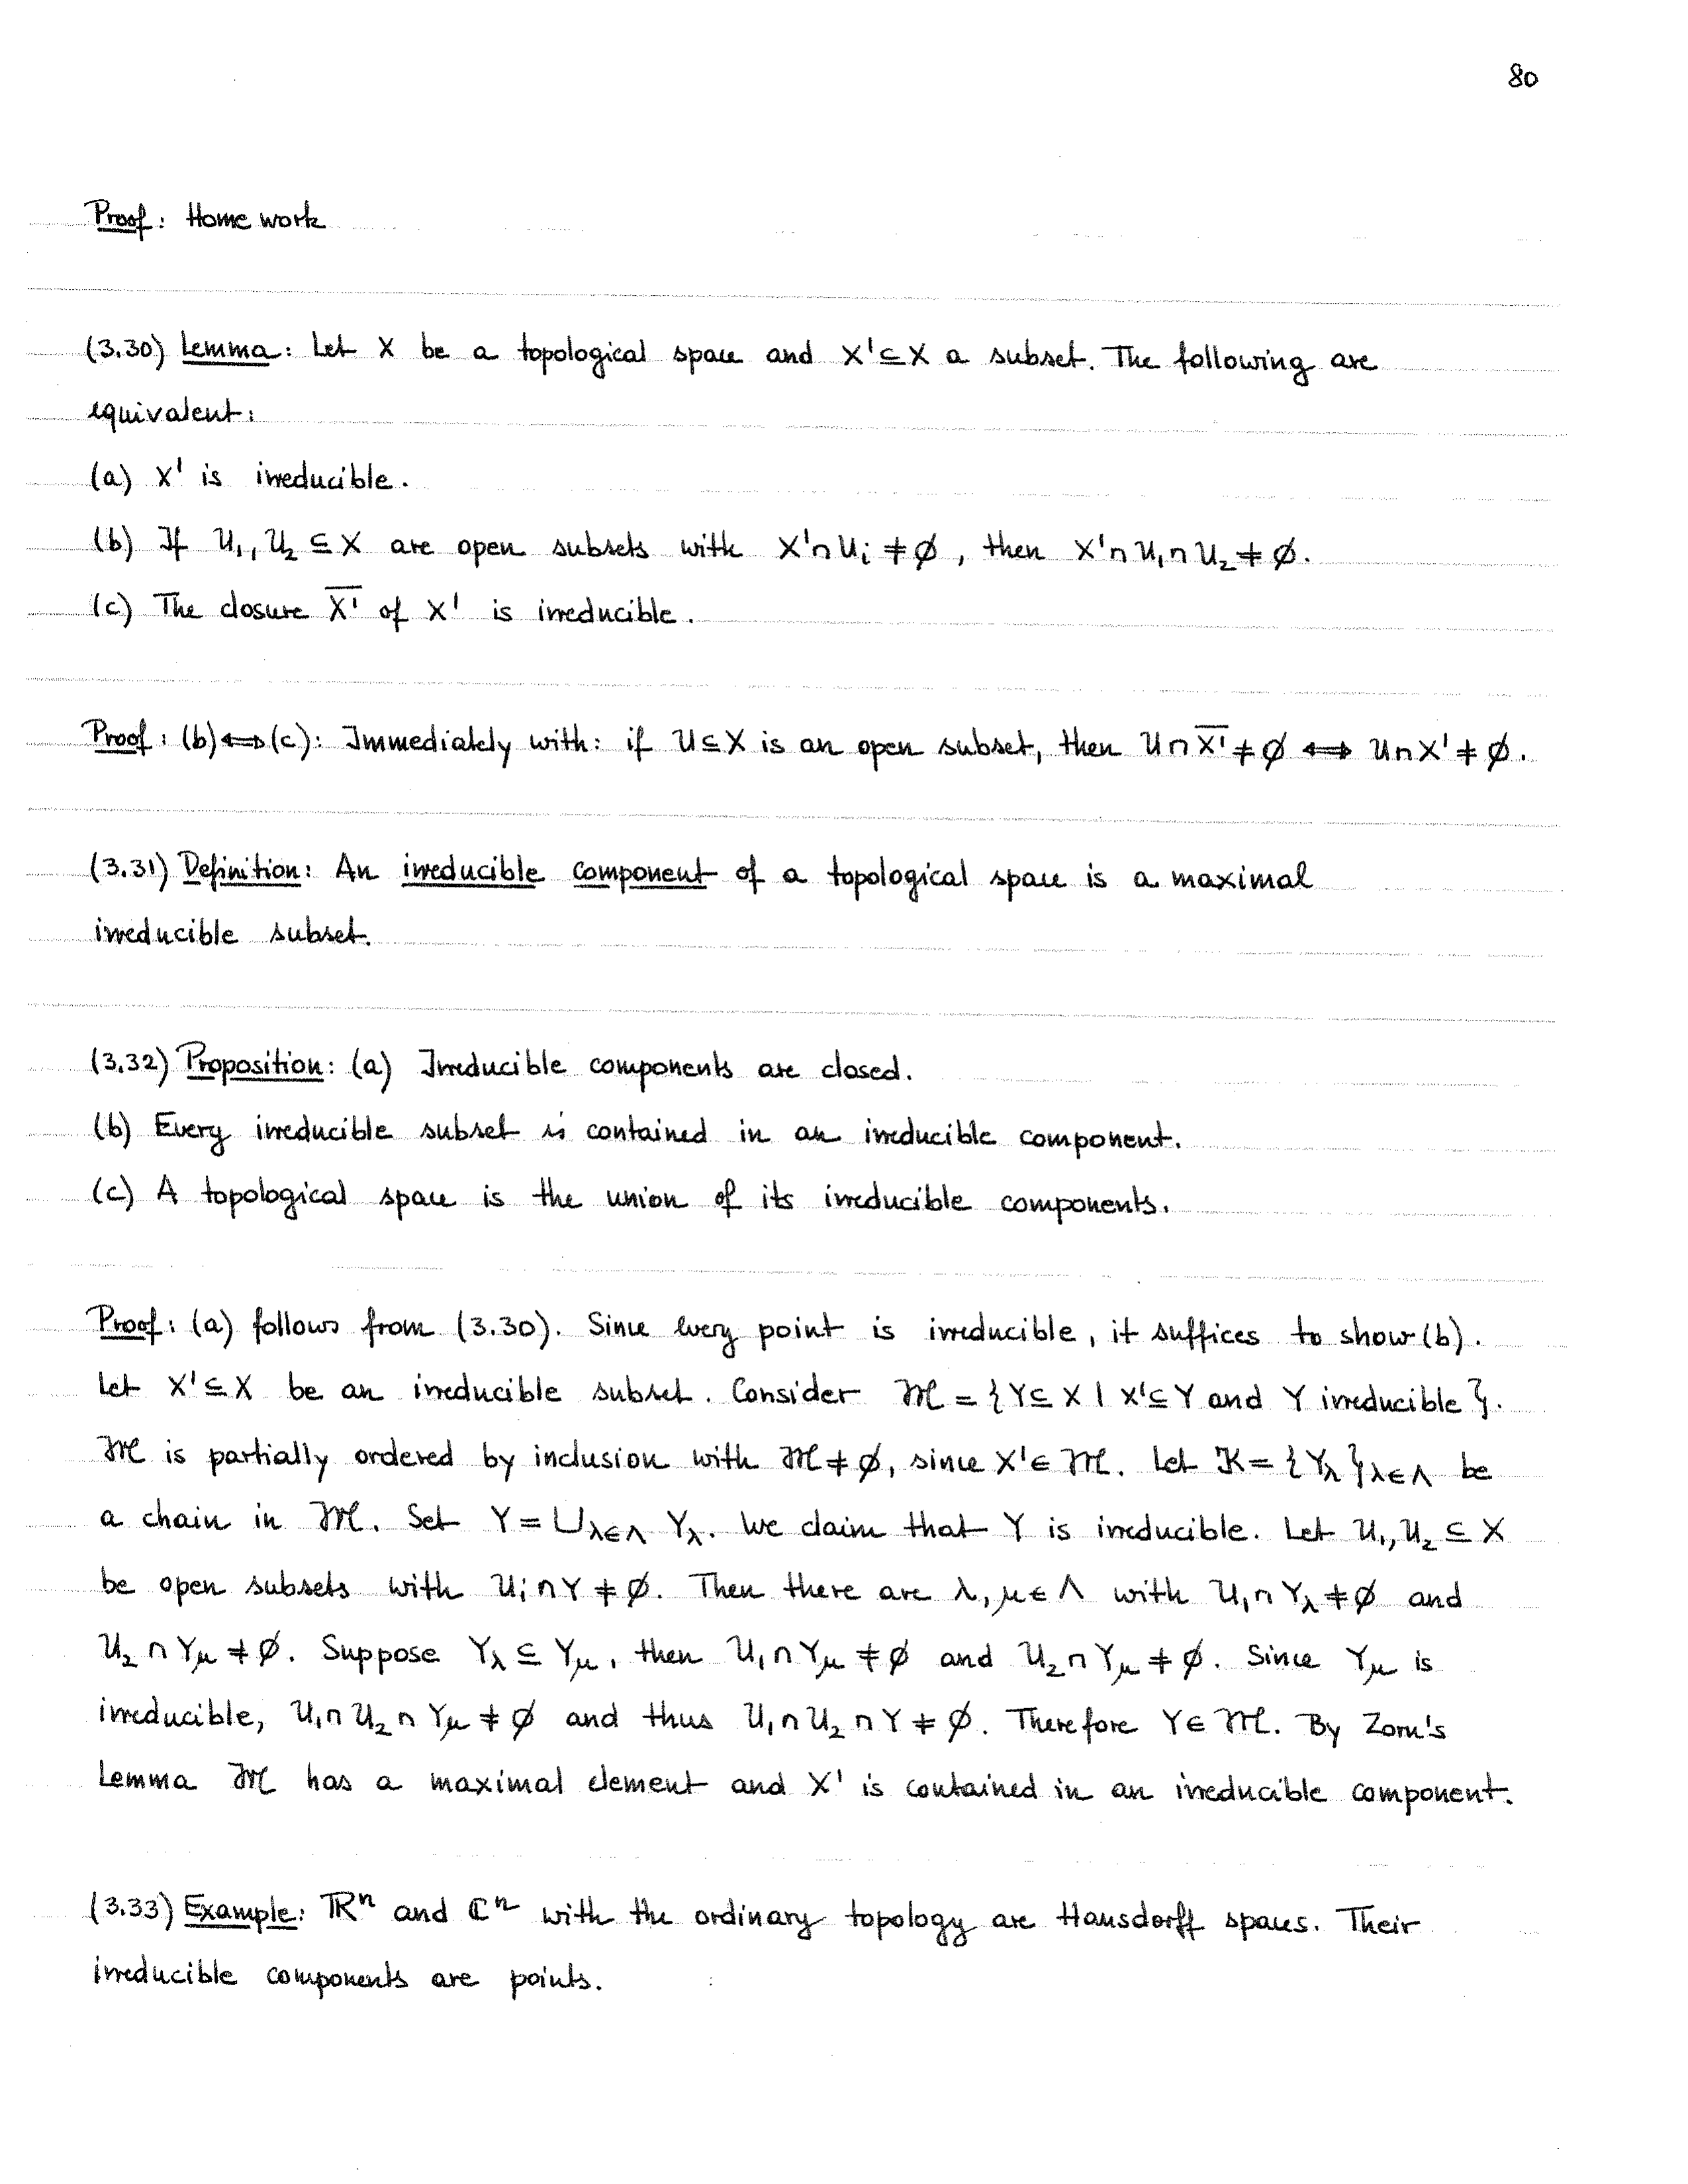 80
Proof: Home work
(3.30) Lemma: Let X be a topological space and X' ⊆ X a subset. The following are
equivalent:
(a) X' is irreducible.
(b) If U₁, U₂ ⊆ X are open subsets with X'∩Uᵢ ≠ ∅, then X'∩U₁∩U₂ ≠ ∅.
(c) The closure X̅'̅ of X' is irreducible.
Proof: (b)⟺(c): Immediately with: if U⊆X is an open subset, then U∩X̅'̅ ≠ ∅ ⟺ U∩X' ≠ ∅.
(3.31) Definition: An irreducible component of a topological space is a maximal
irreducible subset.
(3.32) Proposition: (a) Irreducible components are closed.
(b) Every irreducible subset is contained in an irreducible component.
(c) A topological space is the union of its irreducible components.
Proof: (a) follows from (3.30). Since every point is irreducible, it suffices to show (b).
Let X'⊆X be an irreducible subset. Consider ℳ = {Y⊆X | X'⊆Y and Y irreducible}.
ℳ is partially ordered by inclusion with ℳ ≠ ∅, since X'∈ℳ. Let 𝒦 = {Y_λ}_λ∈Λ be
a chain in ℳ. Set Y = ⋃_λ∈Λ Y_λ. We claim that Y is irreducible. Let U₁, U₂ ⊆ X
be open subsets with Uᵢ∩Y ≠ ∅. Then there are λ, μ∈Λ with U₁∩Y_λ ≠ ∅ and
U₂∩Y_μ ≠ ∅. Suppose Y_λ ⊆ Y_μ, then U₁∩Y_μ ≠ ∅ and U₂∩Y_μ ≠ ∅. Since Y_μ is
irreducible, U₁∩U₂∩Y_μ ≠ ∅ and thus U₁∩U₂∩Y ≠ ∅. Therefore Y∈ℳ. By Zorn's
Lemma ℳ has a maximal element and X' is contained in an irreducible component.
(3.33) Example: ℝⁿ and ℂⁿ with the ordinary topology are Hausdorff spaces. Their
irreducible components are points.